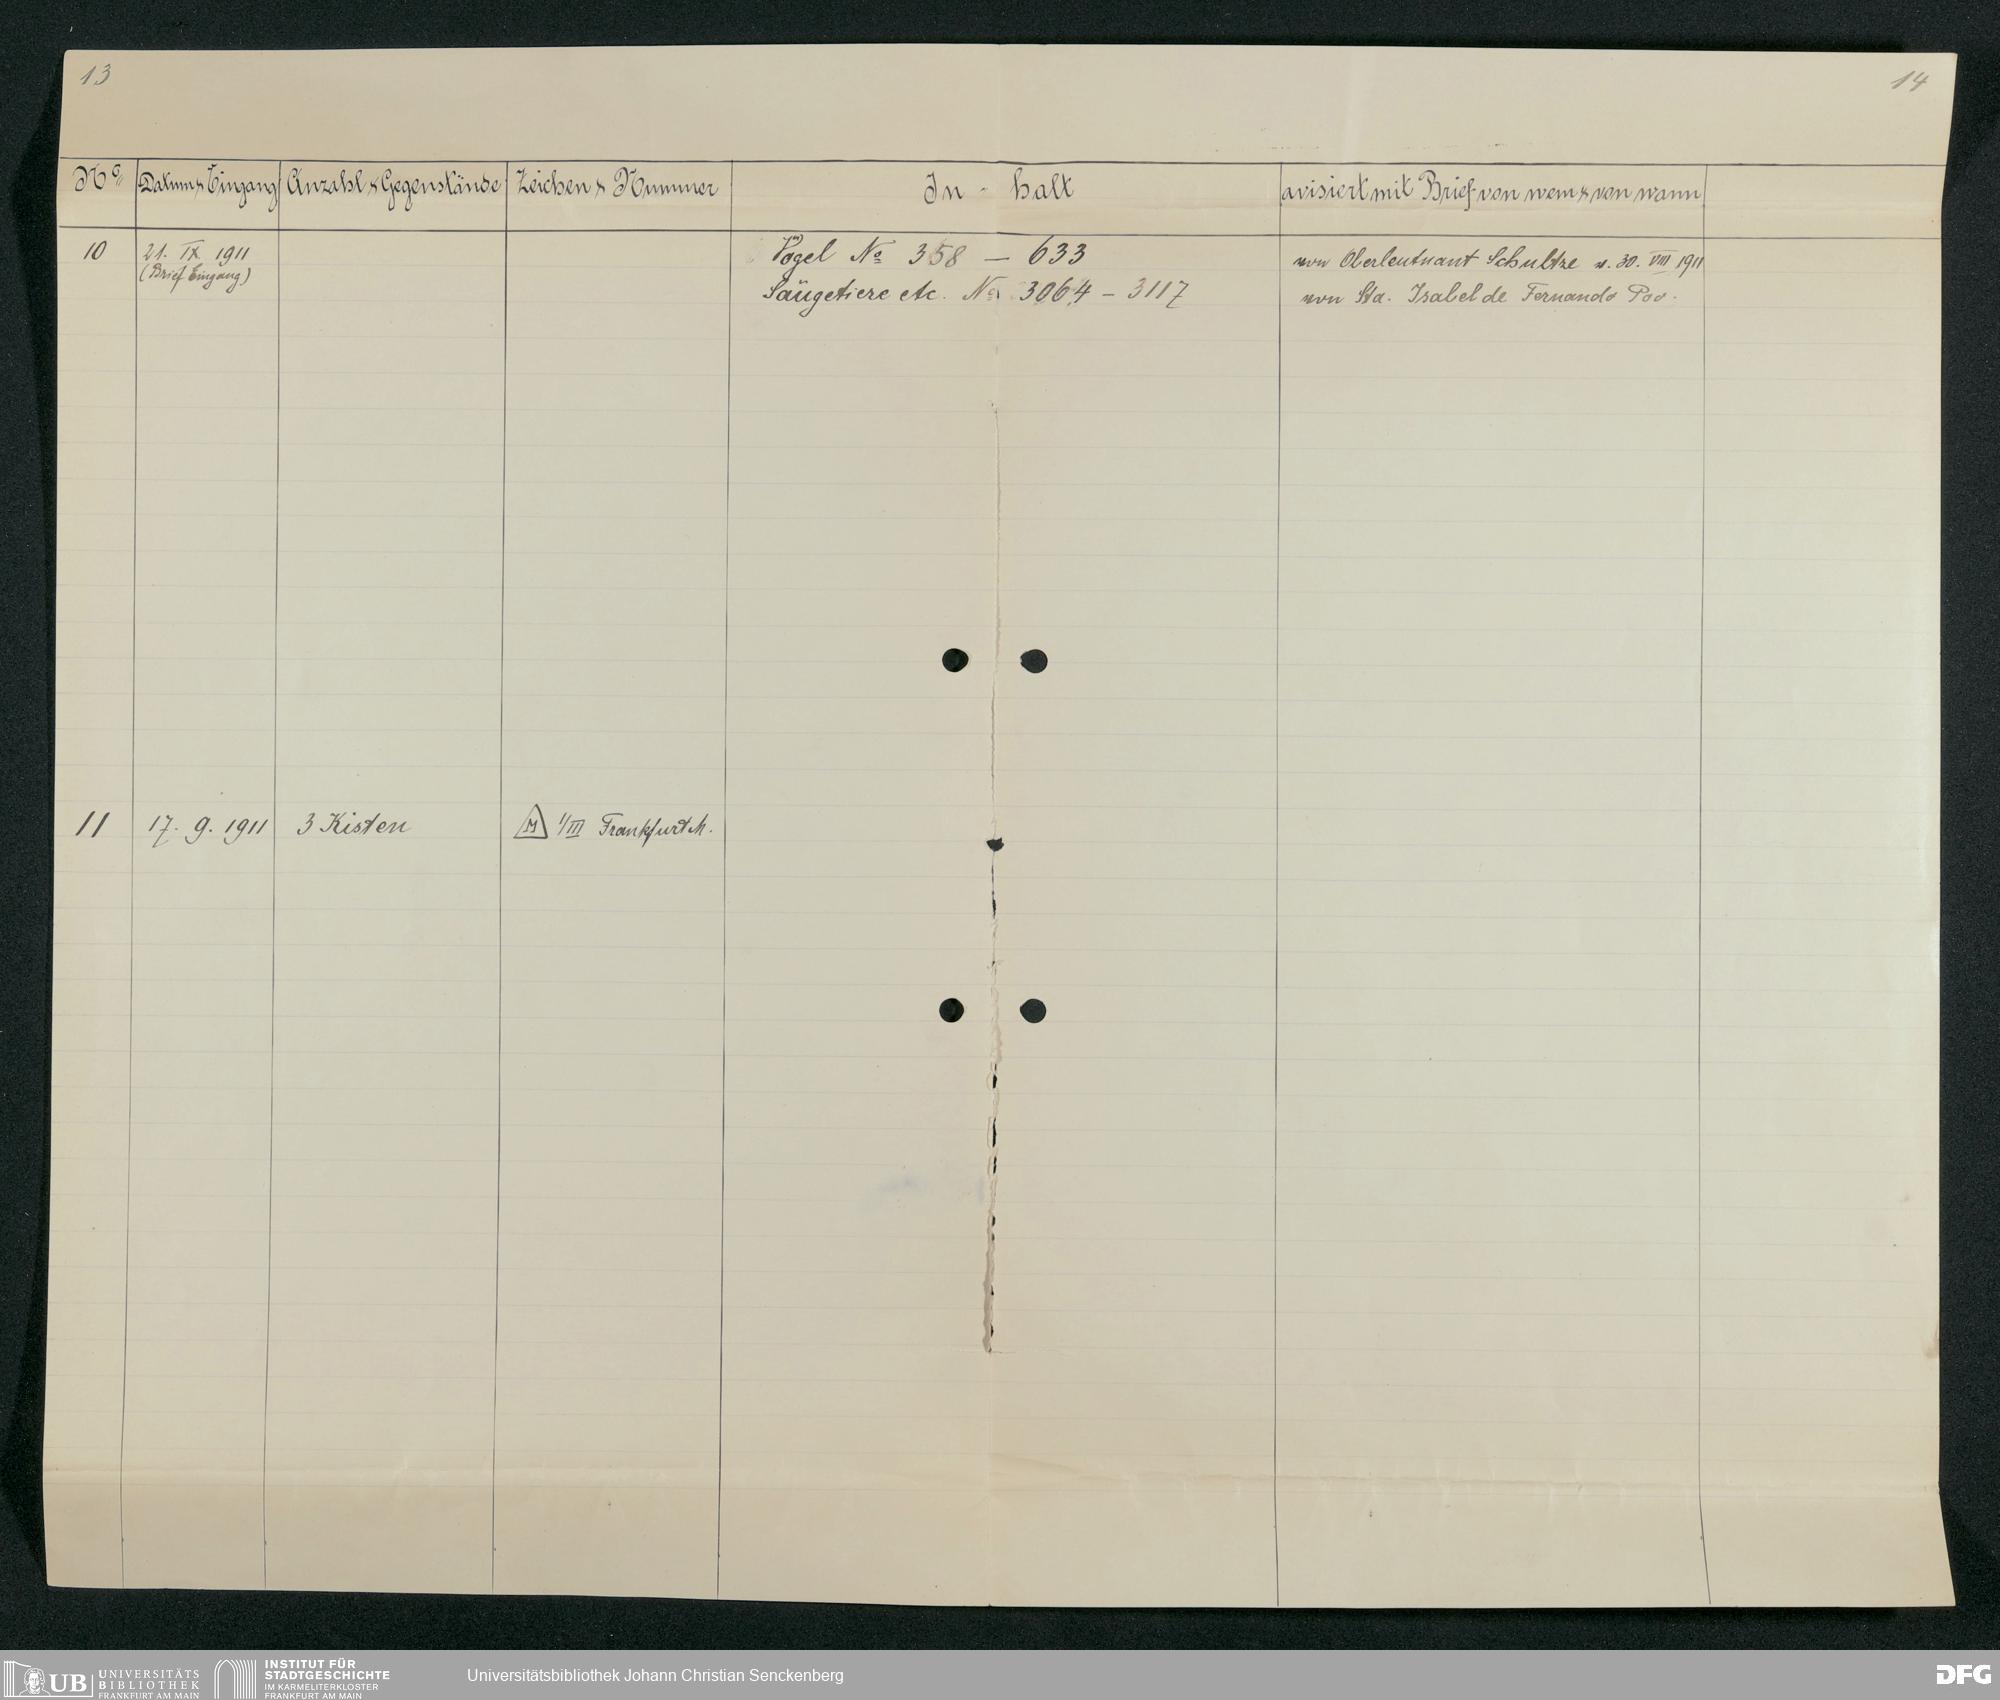 13
14
No. Datum & Eingang Anzahl & Gegenstände Zeichen & Nummer In - halt avisiert mit Brief von wem & von wann
10 21. IX. 1911 Vögel No 358 — 633 von Oberleutnant Schultze v. 30. VIII 1911
(Brief Eingang) Säugetiere etc. No 3064 – 3117 von Sta. Isabel de Fernando Poo.
11 17. 9. 1911 3 Kisten M 1/III Frankfurt M.
UB UNIVERSITÄTS
BIBLIOTHEK
FRANKFURT AM MAIN
INSTITUT FÜR
STADTGESCHICHTE
IM KARMELITERKLOSTER
FRANKFURT AM MAIN
Universitätsbibliothek Johann Christian Senckenberg
DFG